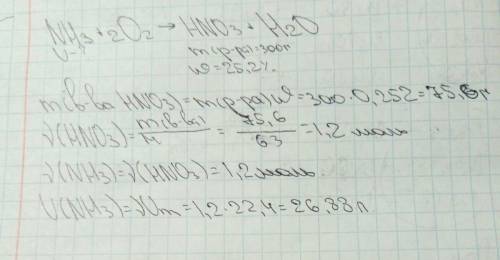 NH3+2O2→HNO3+H2O
V-? m(р-ра)=300г
ω=25,2%
m(в-ва HNO3)=m(р-ра)ω=300·0,252=75,6г
ν(HNO3)=m(в-ва)/M=75,6/63=1,2 моль
ν(NH3)=ν(HNO3)=1,2моль
V(NH3)=νVm=1,2·22,4=26,88л